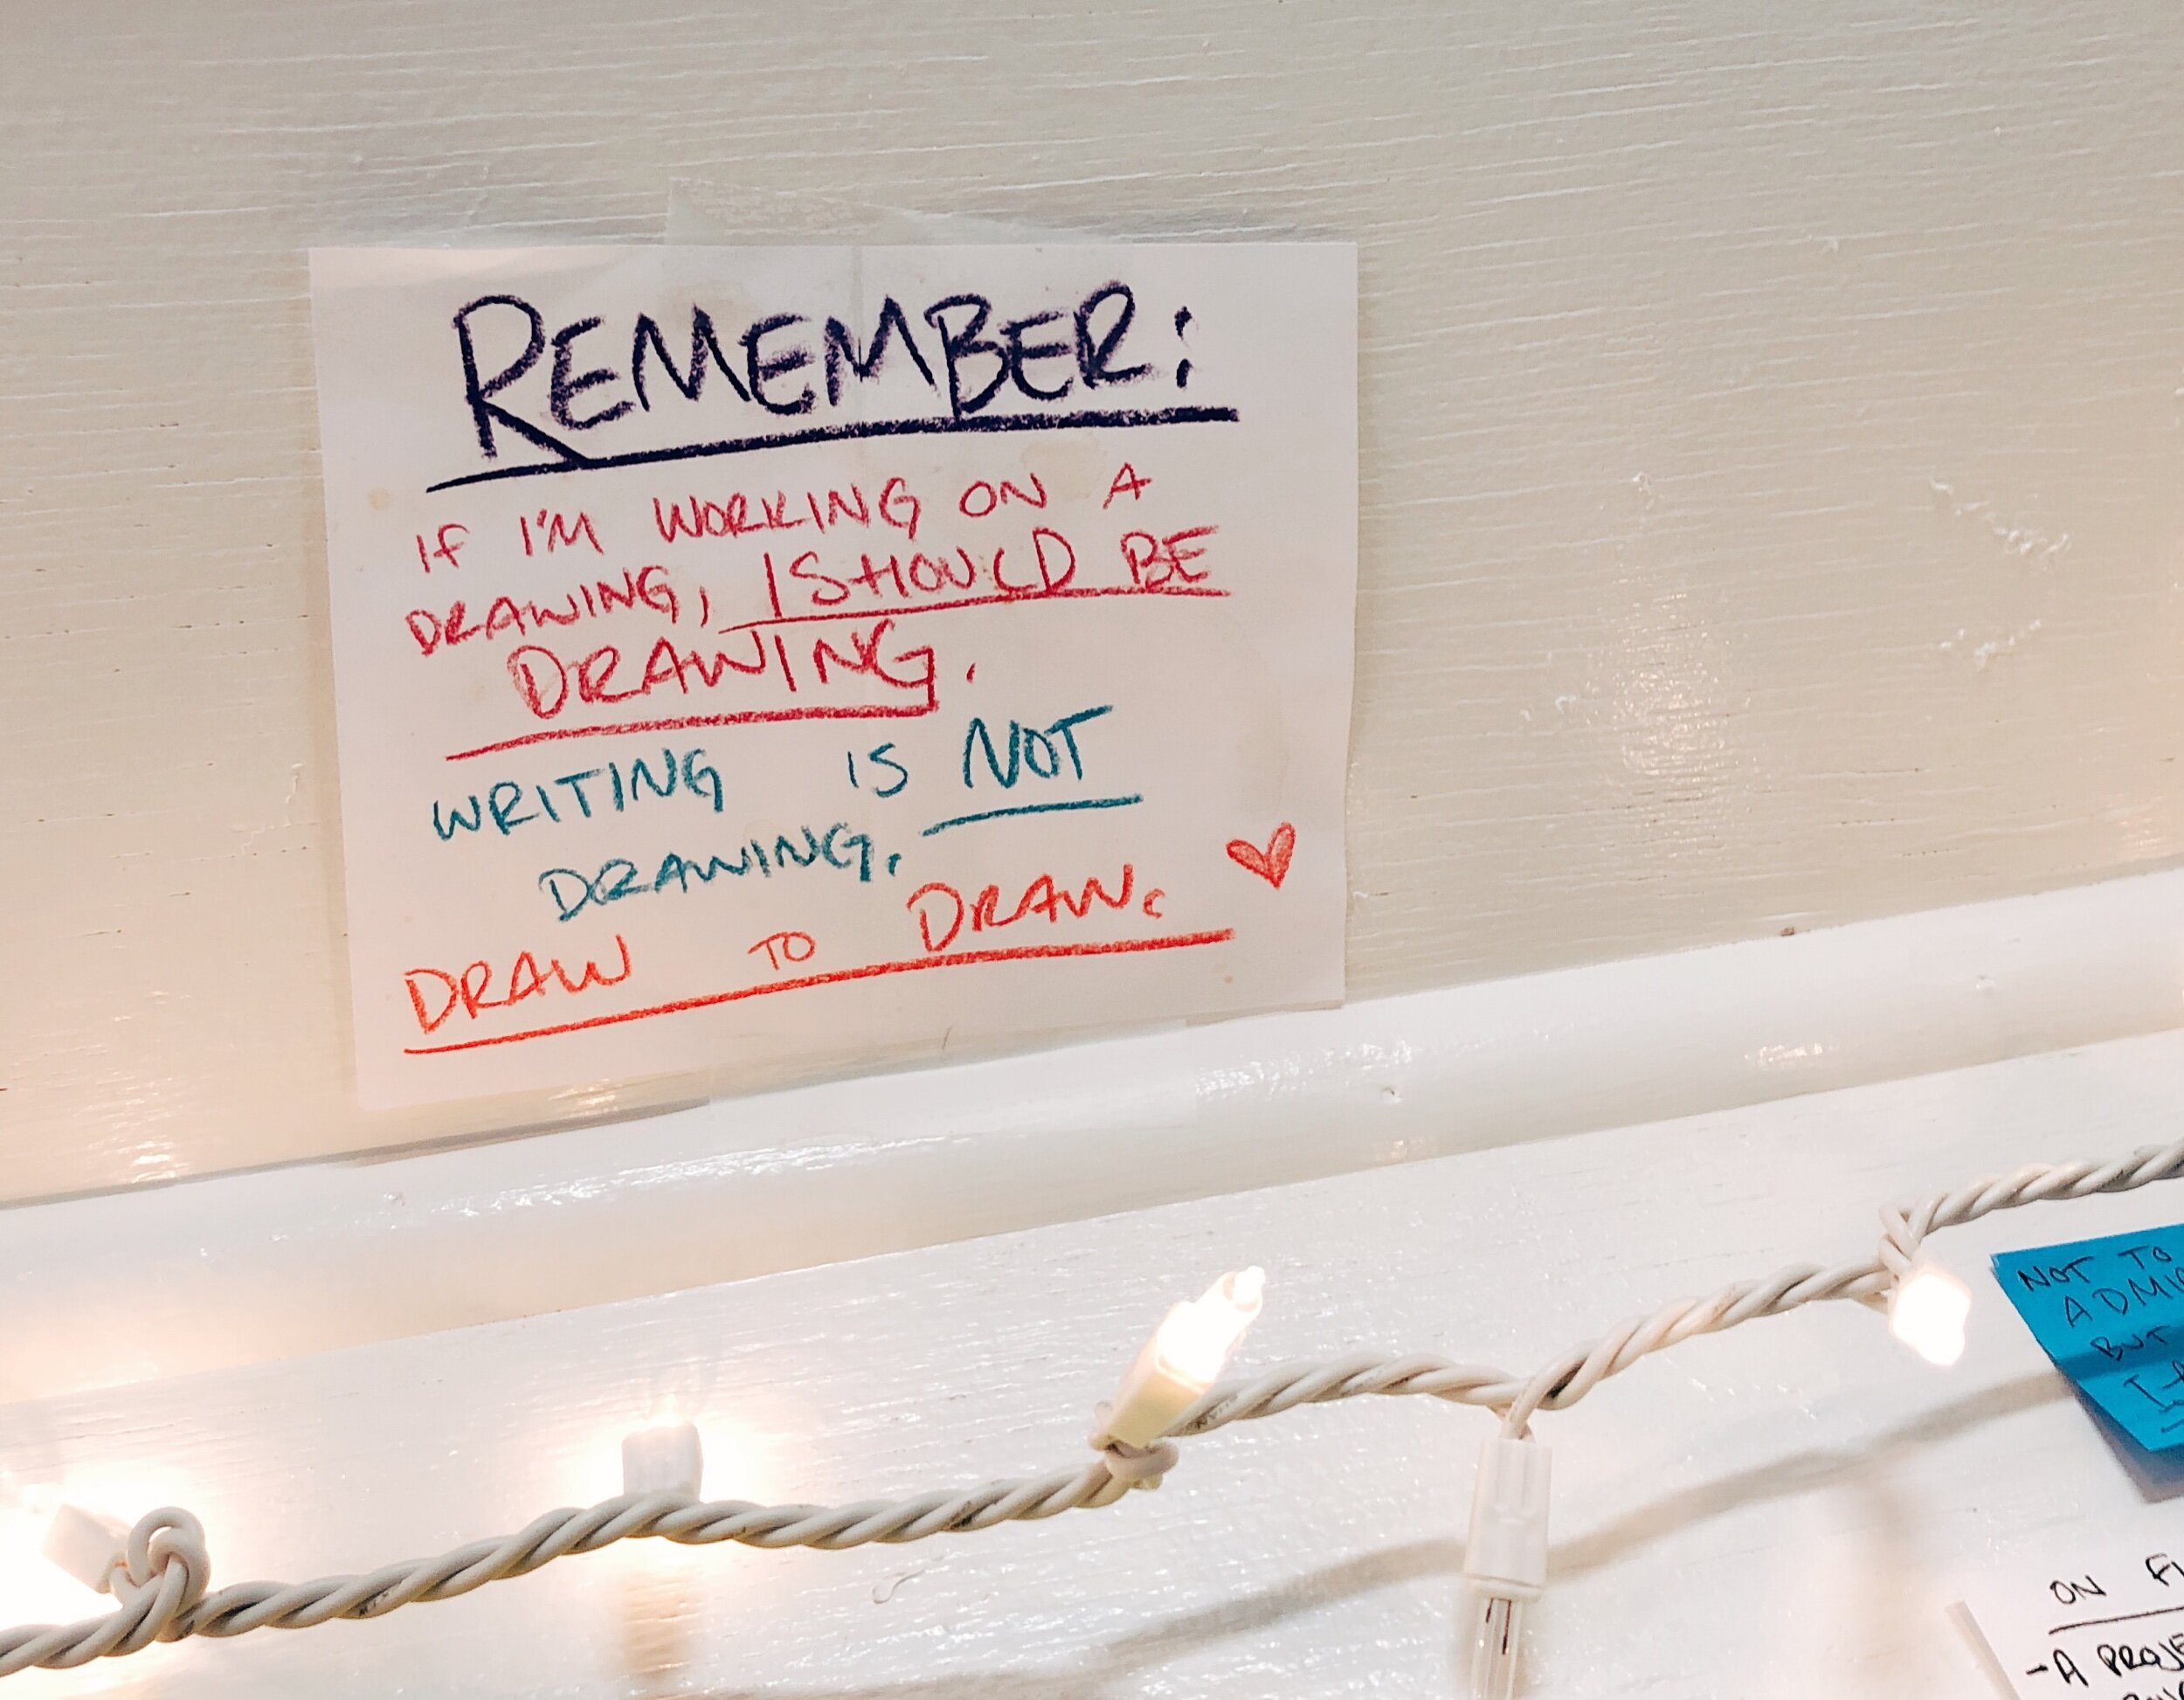 REMEMBER:
IF I'M WORKING ON A
DRAWING, I SHOULD BE
DRAWING.
WRITING IS NOT
DRAWING.
DRAW TO DRAW.
NOT TO
BUT
ON
-A